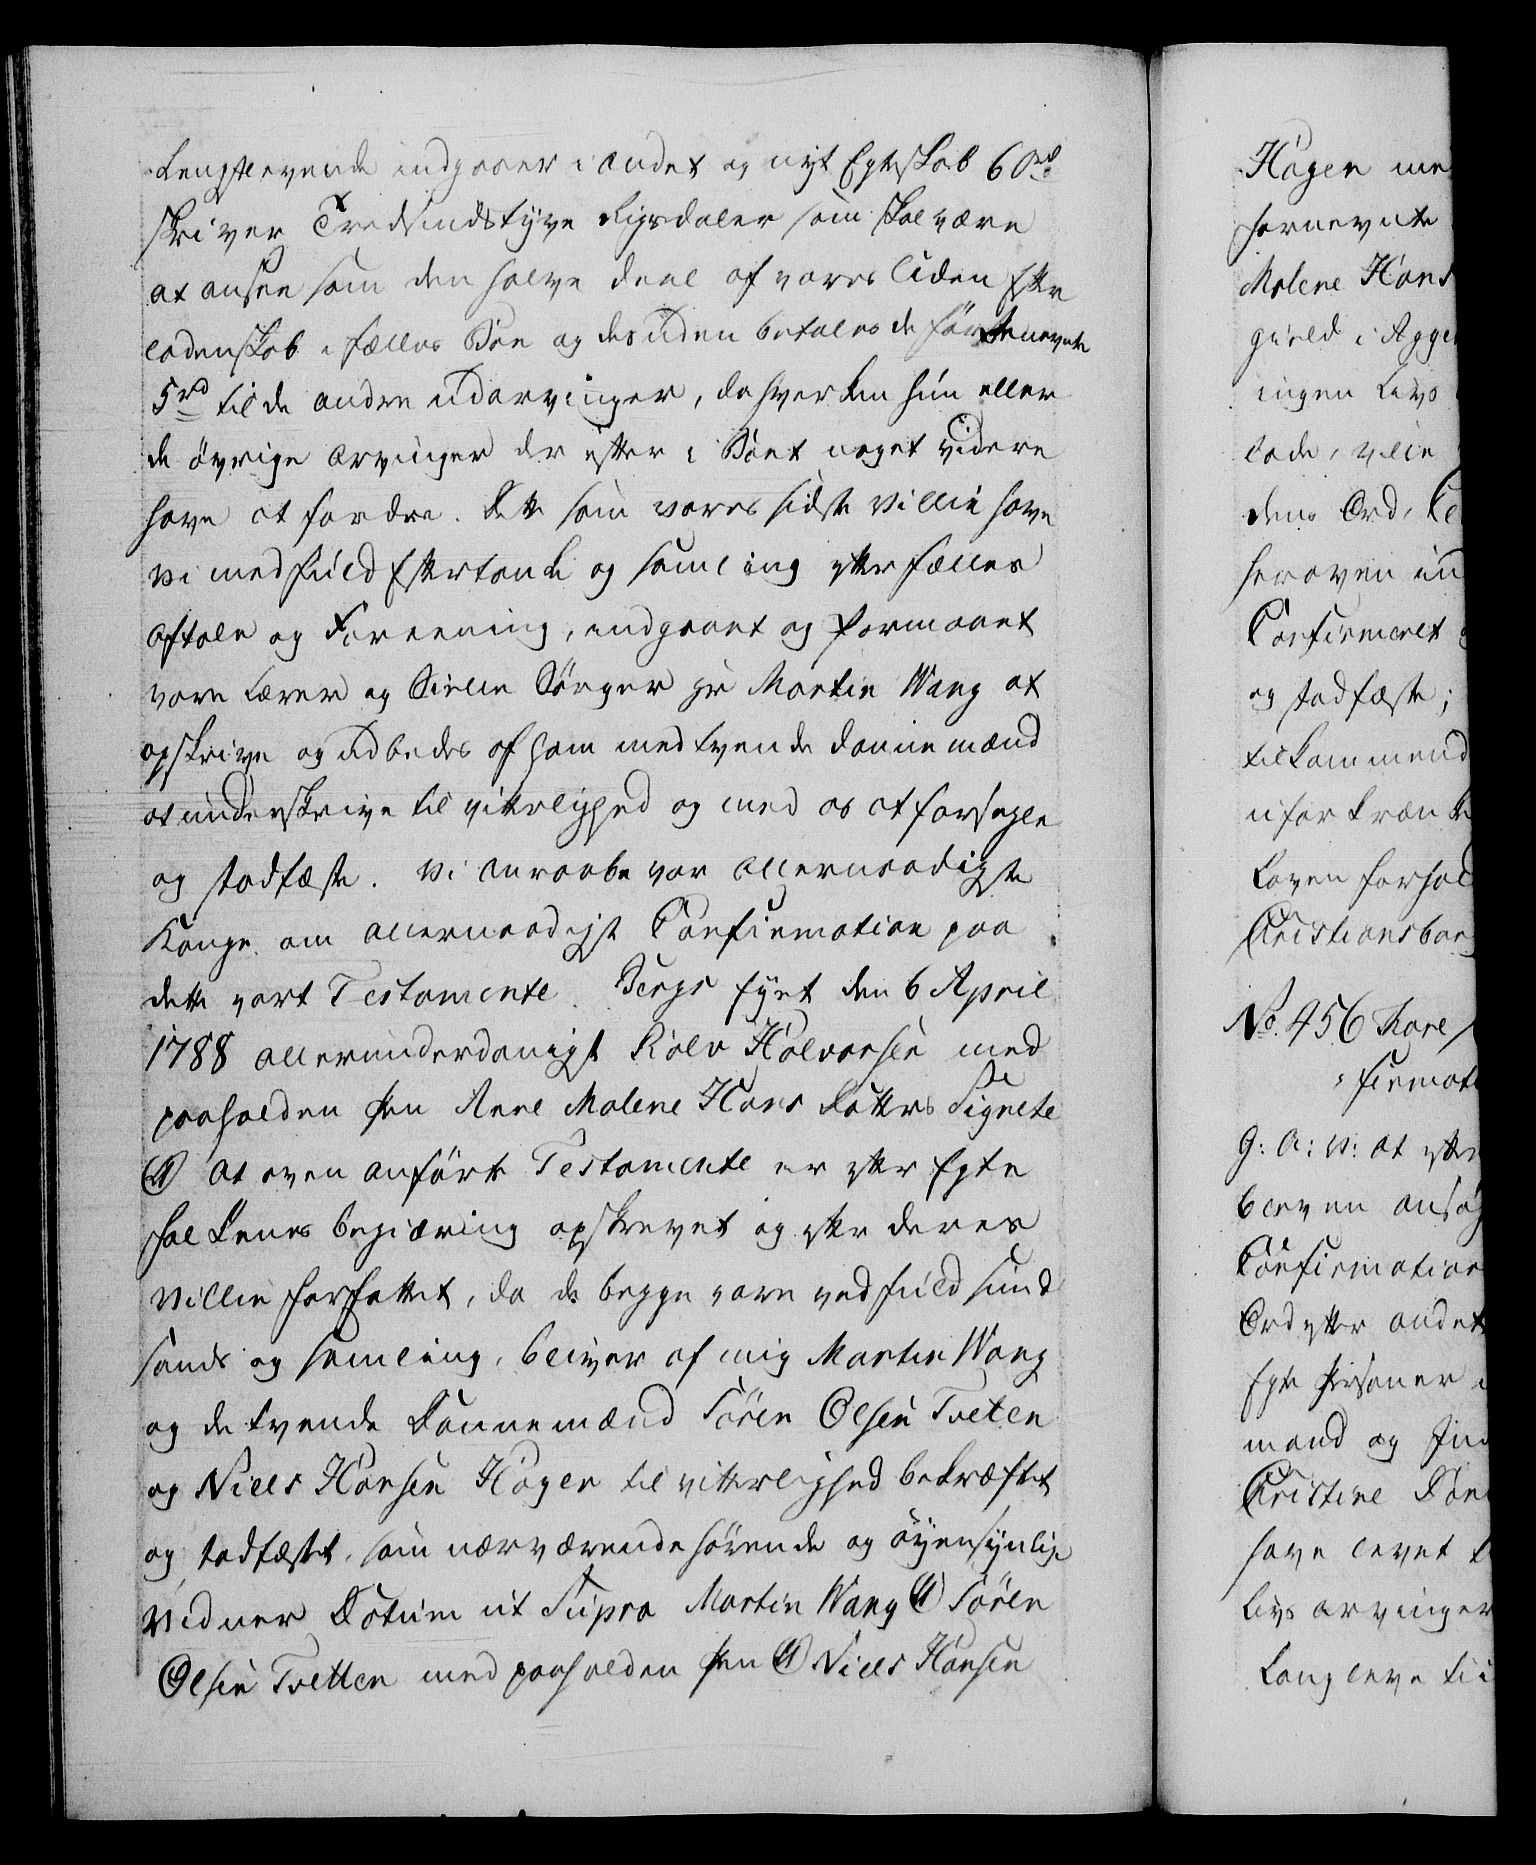 Lengstlevende indgaaer i andet og nyt Egteskab 60 rd
skriver Tredsindstyve Rigsdaler som skal være
at ansee som den halve deel af vores liden Efter
ladenskab i fælles Boe og desuden betales de før benevnte
5 rd til de andre udarvinger, da hverken hun eller
de øvrige Arvinger der efter i Boet noget videre
have at fordre. Dette som vores sidste Villie have
vi med fuld Eftertanke og samling efter fælles
aftale og Foreening, indgaaet og formaaet
vore Lærer og Siele Sørger hr Martin Wang at
opskrive og udbedes af ham med tvende Dannemænd
at underskrive til vitterlighed og med os at forseigle
og stadfæste. Vi anraabe vor allernaadigste
Konge om allernaadigst Confirmation paa
dette vort Testamente. Bergs fyet den 6 April
1788 allerunderdanigst Rolv Halvorsen med
paaholden Pen Anne Malene Hans Datters Signete
(LS) At oven anførte Testamente er efter Egte
Folkenes begiæring opskrevet og efter deres
Villie forfattet, da de begge vare ved fuld sund
sands og samling, bliver af mig Martin Wang
og de tvende Dannemænd Sören Olsen Tveten
og Niels Hansen Hagen til vitterlighed bekræftet
og stadfæstet, som nærværende hørende og øyensynlige
Vidner Datum ut Supra Martin Wang (LS) Sören
Olsen Tvetten med paaholden Pen (LS) Niels Hansen
Hagen me
fornevnte
Malene Hans
gueld i Agger
ingen Livs
lade, velie
dens Ord, Kl
heroven in
Confirmeret
og stadfæste;
tilkommend
uforkrænke
Loven forhol
Christiansbor
No. 456 Kare
firmati
G: A: V: at efter
bleven ansøg
Confirmation
Ord efter andet
Egte Personer
mand og Jn
Christine
have levet
Livs arvinger
Langleve ti